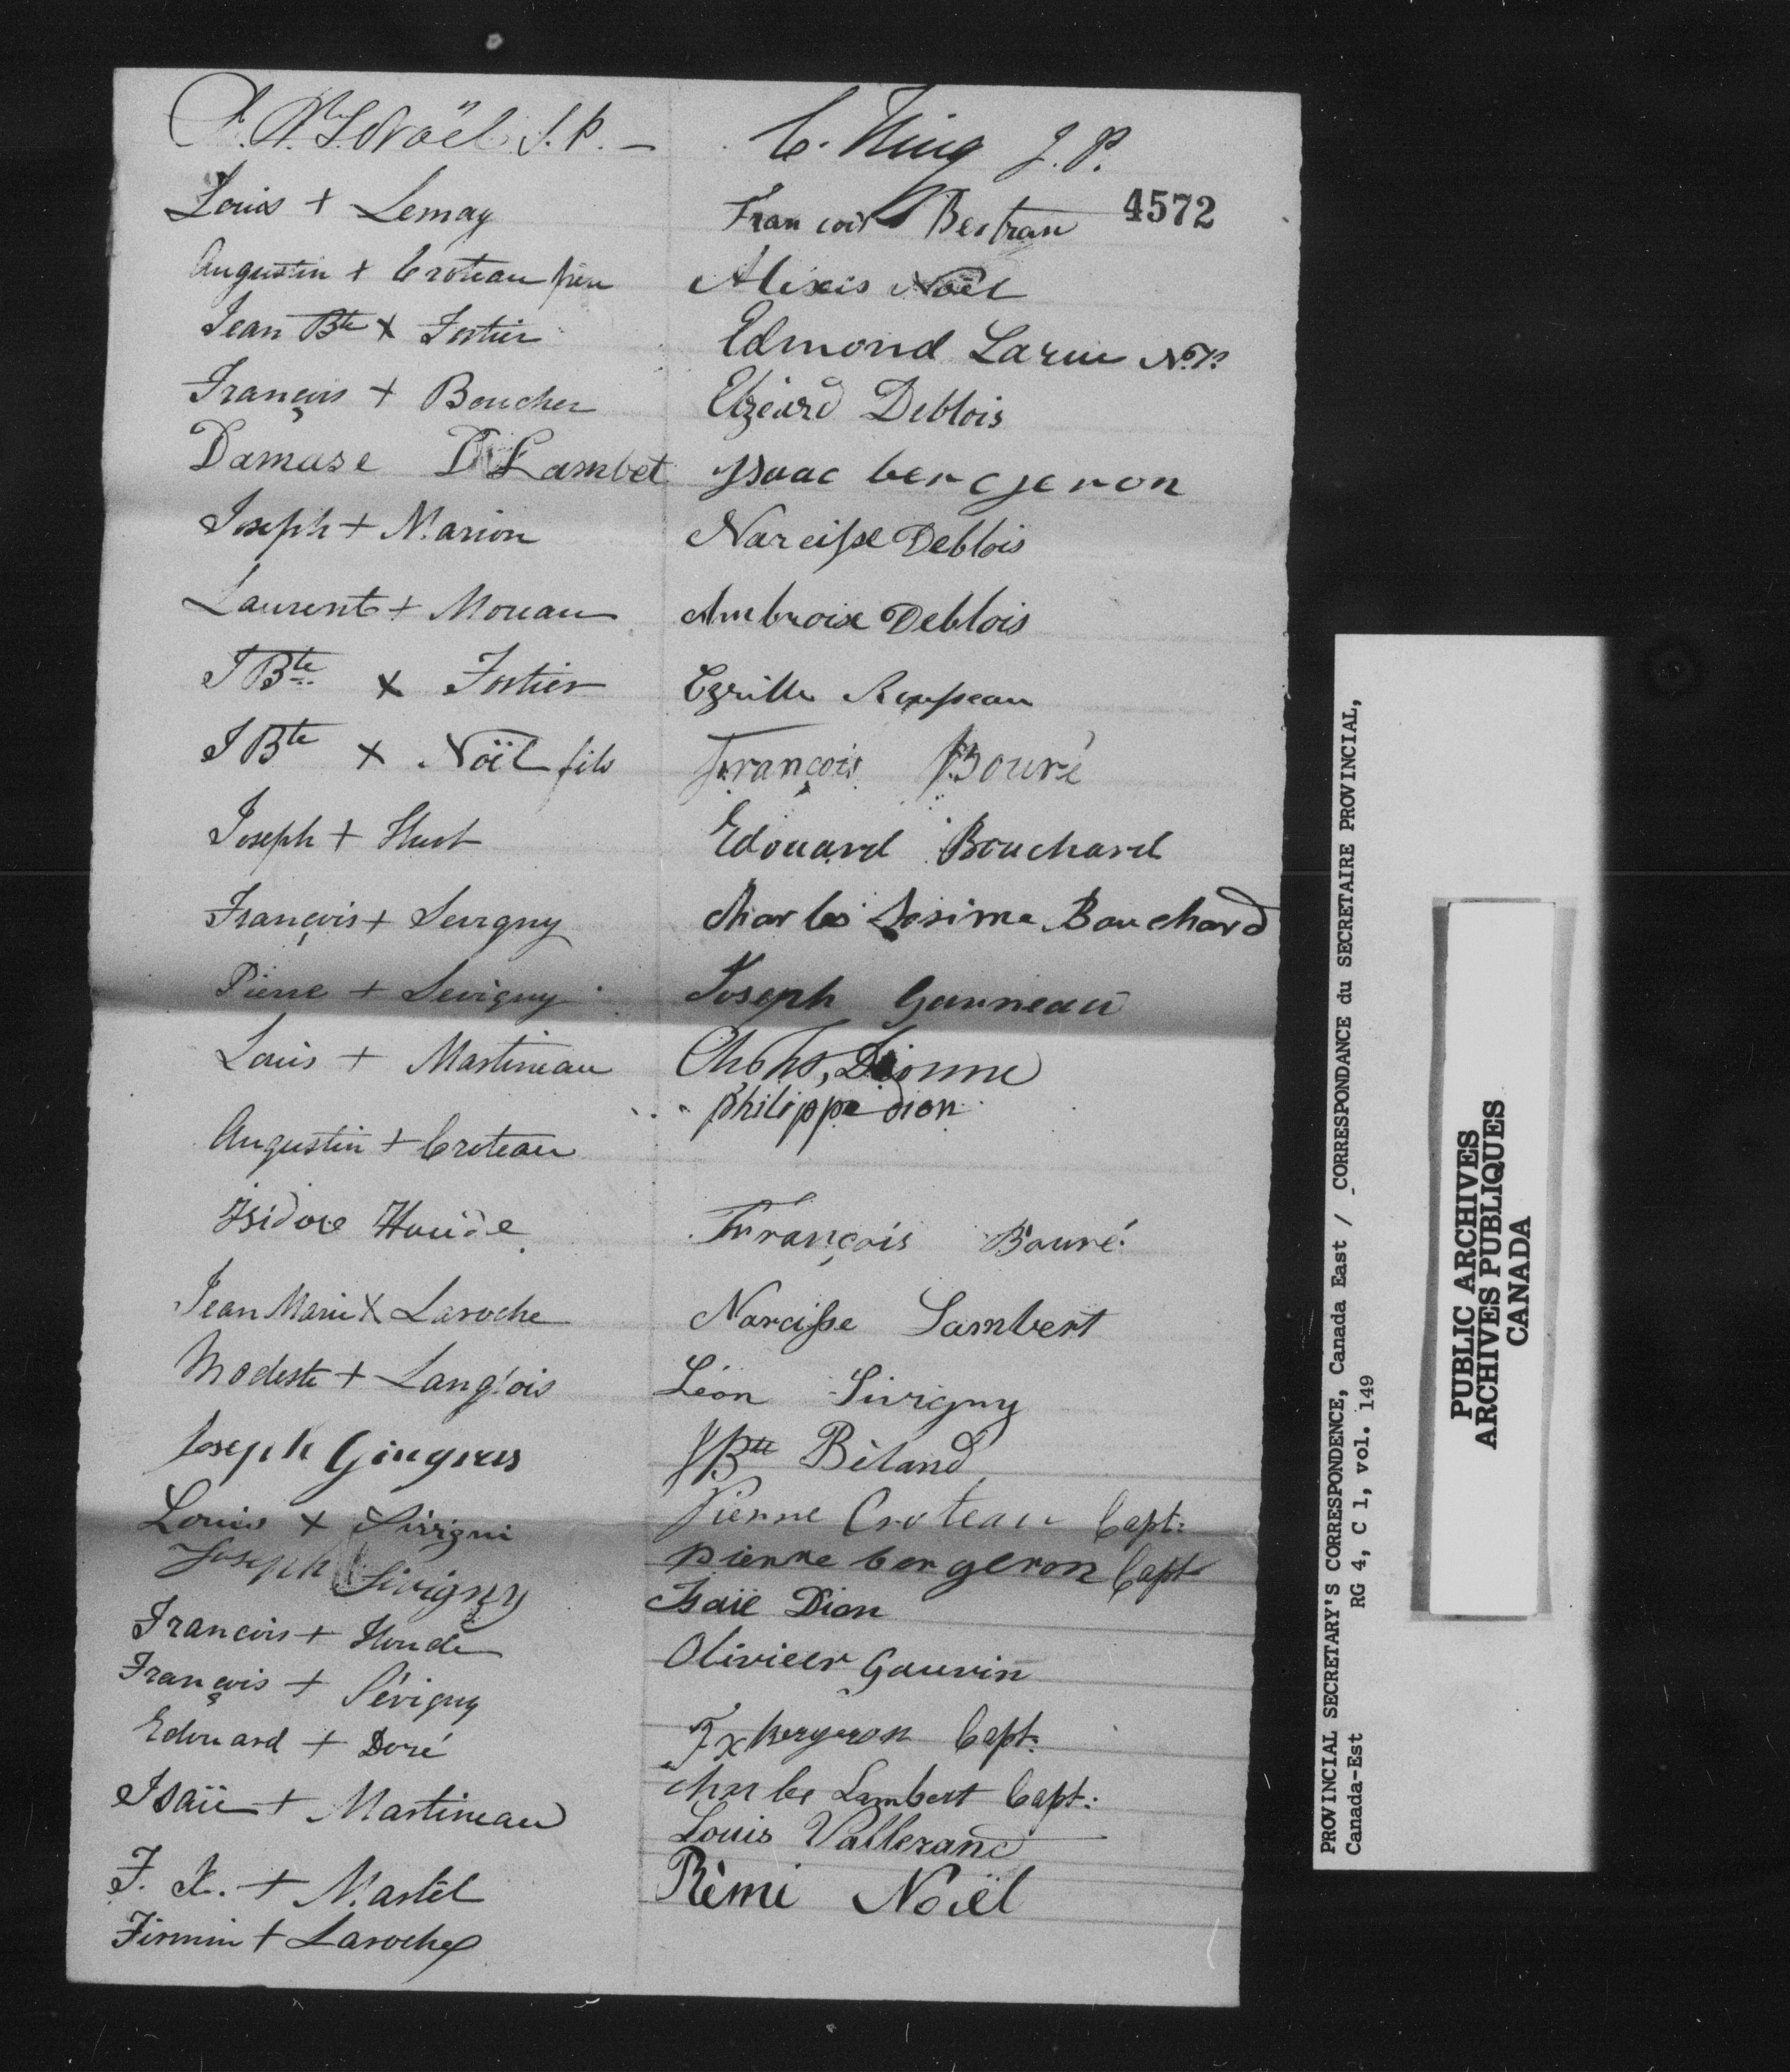 Noël J.P. –
Louis + Lemay
Augustin + Croteau père
Jean Bte X Fortier
François + Boucher
Damase D Lambet
Joseph + Marion
Laurent + Moreau
J Bte X Fortier
J Bte X Noël fils
Joseph + Huot
François + Sevigny
Pierre + Sevigny
Louis + Martineau
Augustin + Croteau
Isidore Houde
Jean Marie X Laroche
Modeste + Langlois
Joseph Gingras
Louis X Sivigni
Joseph Sivigny
Francois + Houde
François + Sévigny
Edouard + Doré
Isaïe + Martineau
F. X. + Martel
Firmin + Laroche
C. King J.P.
4572
Francois Bertran
Alixis Noël
Edmond Larue N.P.
Elzéard Deblois
Isaac bergeron
Narcisse Deblois
Ambroise Deblois
Cyrille Rousseau
François Bouré
Edouard Bouchard
Charles Sosime Bouchard
Joseph Garneau
Dionne
philippe dion
François Bouré
Narcisse Lambert
Léon Sivigny
JBte Béland
Pierre Croteau Capt:
pierre bergeron Capt
Isaïe Dion
Olivieer Gauvin
Fx Bergeron Capt:
Charles Lambert Capt:
Louis Vallerand
Rémi Noël
PROVINCIAL SECRETARY'S CORRESPONDENCE, Canada East / CORRESPONDANCE du SECRETAIRE PROVINCIAL,
Canada-Est RG 4, C 1, vol. 149
PUBLIC ARCHIVES
ARCHIVES PUBLIQUES
CANADA